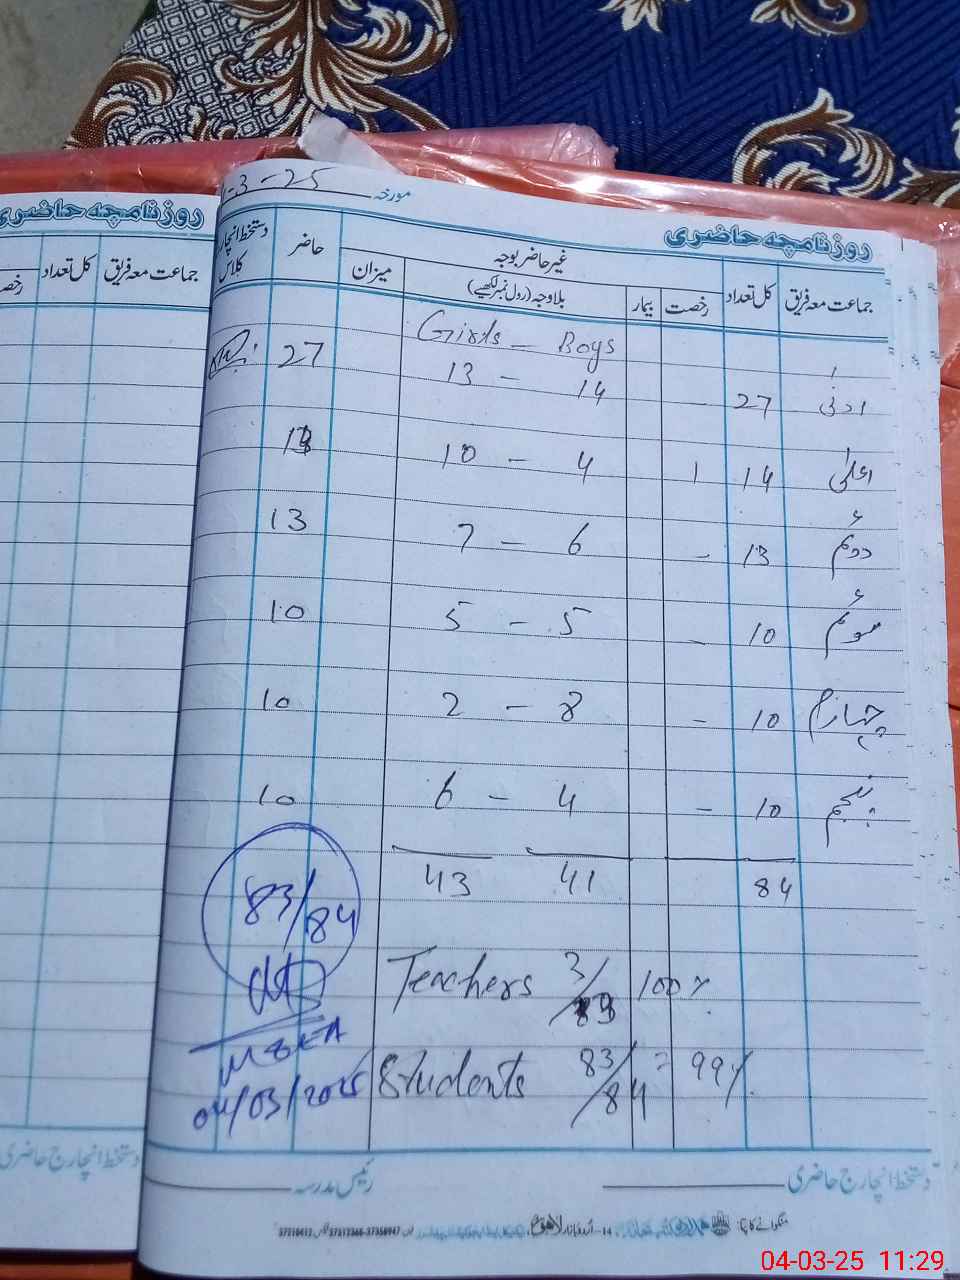 -3-25 مورخہ
روزنامچہ حاضری
روزنامچہ حاضری
جماعت معہ فریق کل تعداد رخصت بیمار غیر حاضر بوجہ میزان حاضر دستخط انچارج کلاس
بلاوجہ (رول نمبر لکھیے)
جماعت معہ فریق کل تعداد
Girls - Boys
ادنیٰ 27 - 13 - 14 27
اعلیٰ 14 1 10 - 4 13
دوئم 13 - 7 - 6 13
سوئم 10 - 5 - 5 10
چہارم 10 - 2 - 8 10
پنجم 10 - 6 - 4 10
84 43 41
83/84
Teachers 3/3 100%
M&EA
Students 83/84 = 99%
04/03/2025
دستخط انچارج حاضری رئیس مدرسہ
دستخط انچارج حاضری
منگوانے کا پتہ: 14-اردو بازار لاہور
04-03-25 11:29